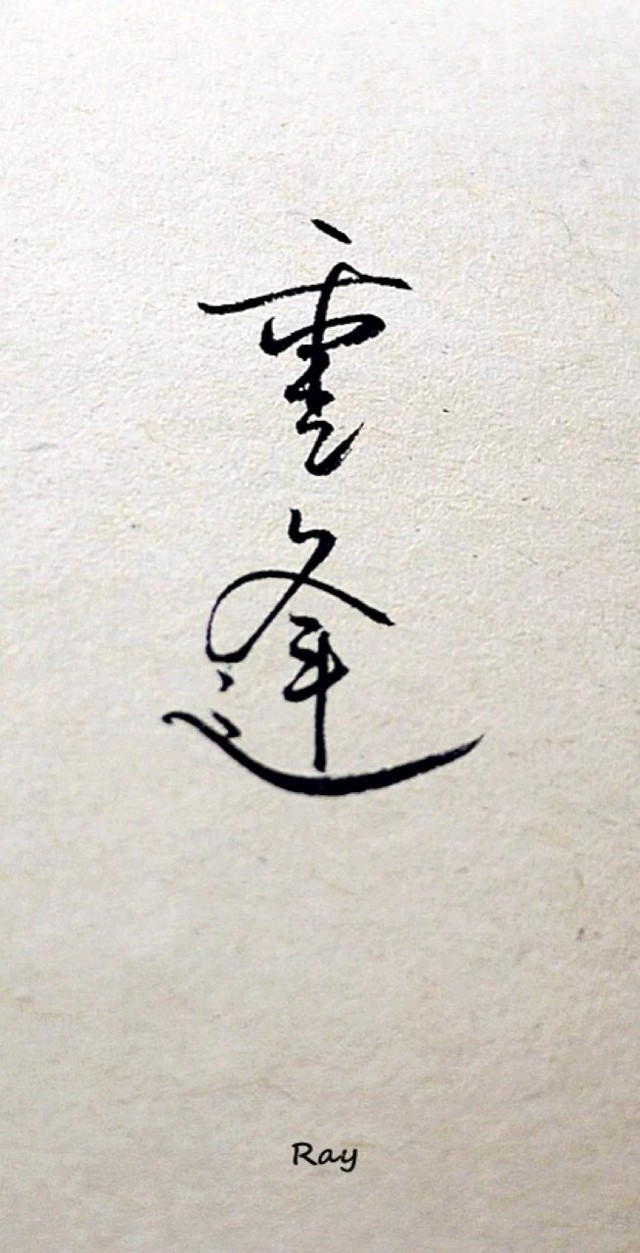 重逢
Ray